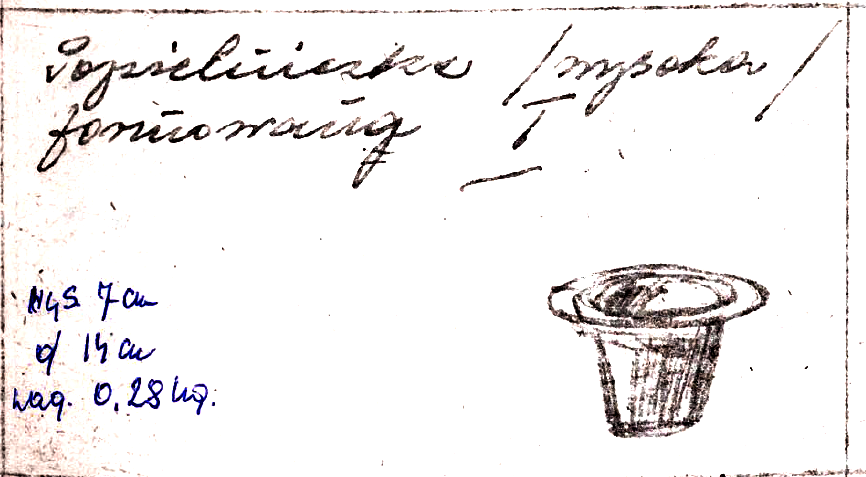 Popielniczka /wysoka/
formowana I
wys 7 cm
d 14 cm
wag. 0,28 kg.